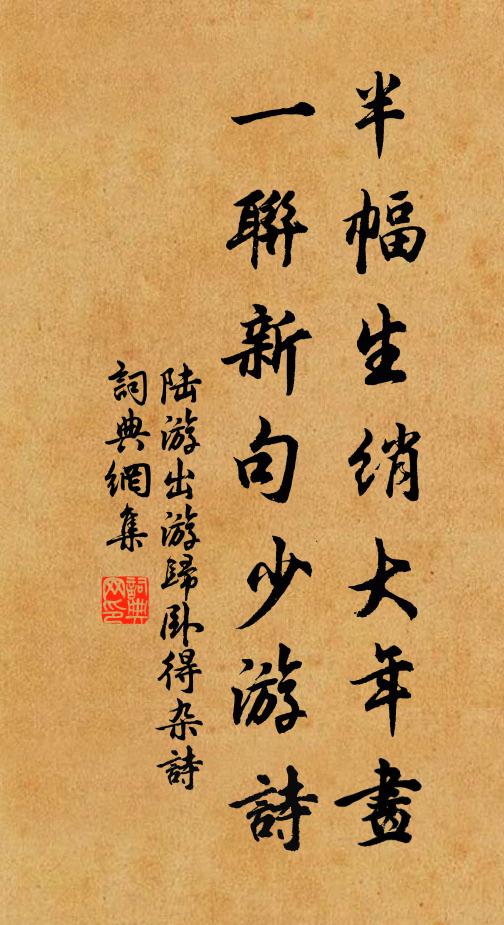 半幅生綃大年畫
一聯新句少游詩
陸游出游歸卧得杂詩
詞典網集
詞典
网印